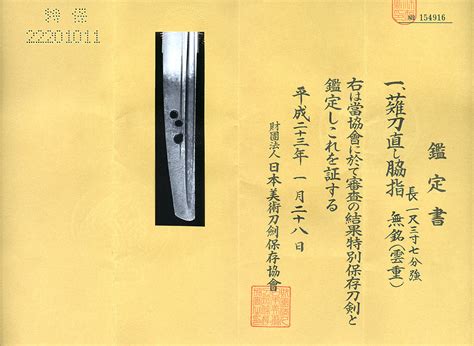 特保
22201011
№ 154916
鑑定書
一、薙刀直し脇指 無銘(雲重)
長一尺三寸七分強
右は當協會に於て審査の結果特別保存刀剣と
鑑定しこれを証する
平成二十三年一月二十八日
財團法人 日本美術刀剣保存協會